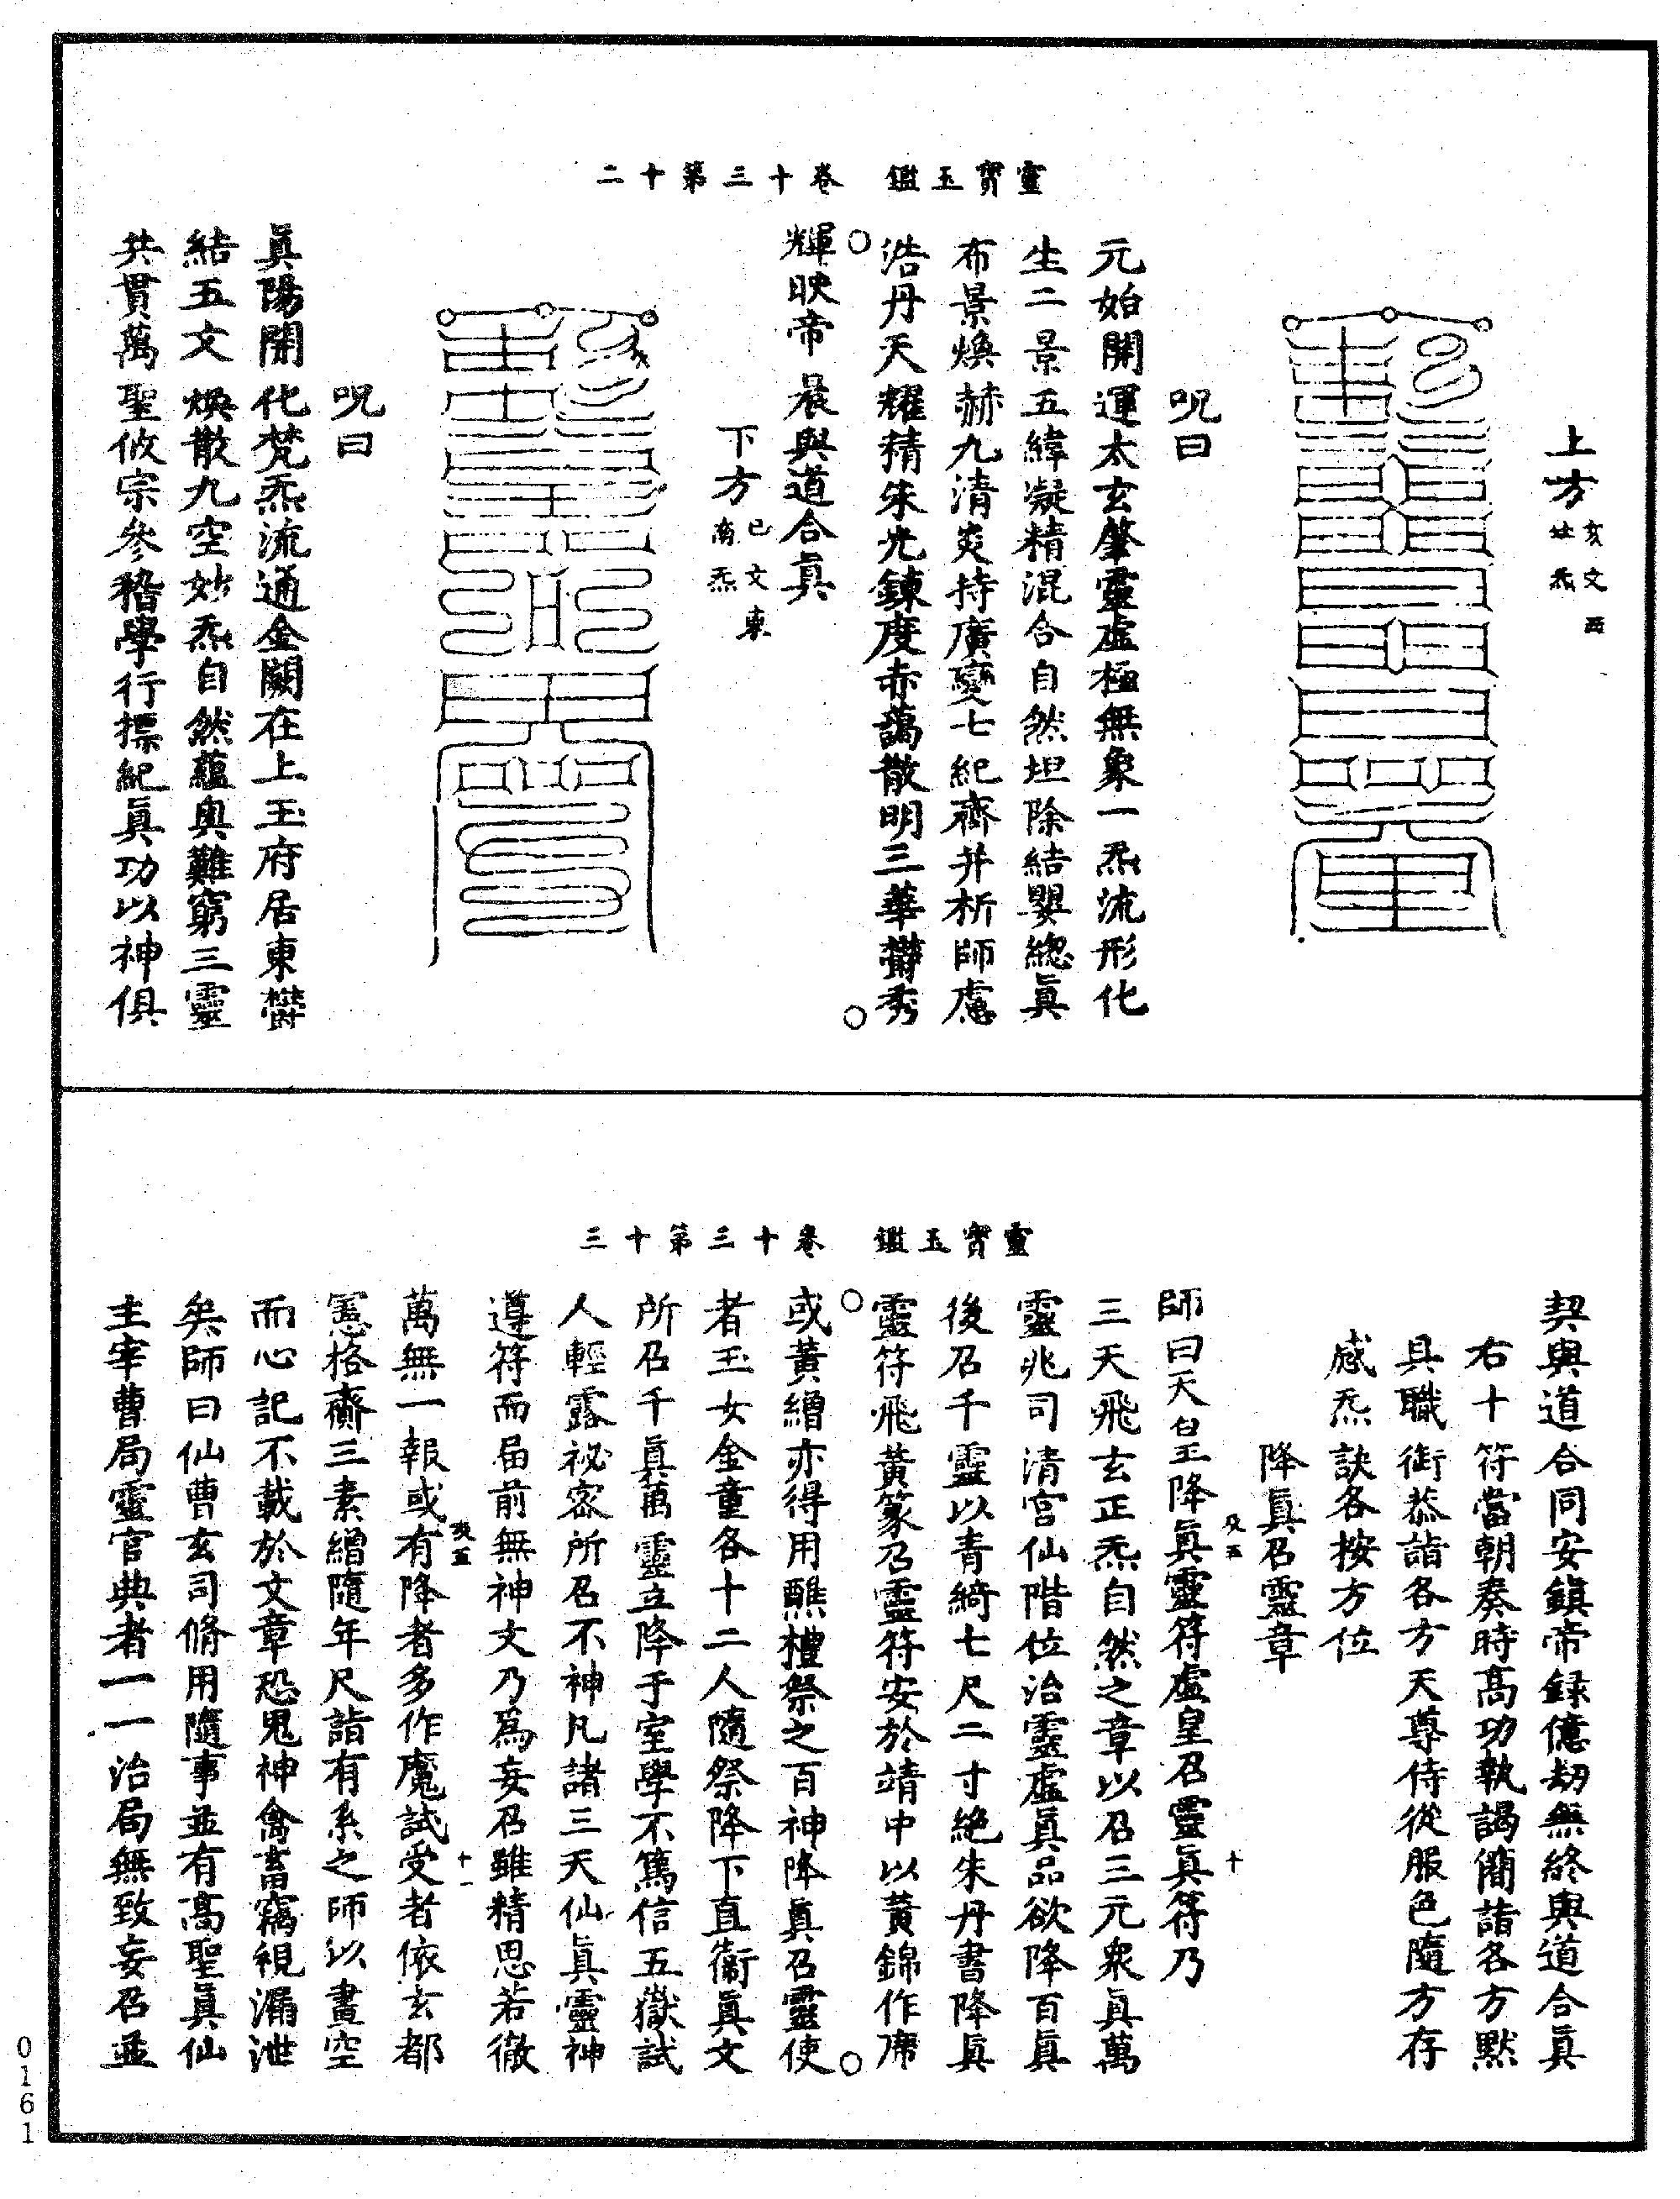 靈寶玉鑑　卷十三第十二
上方
亥文西
炁
呪曰
元始開運太玄肇靈虛極無象一炁流形化
生二景五緯凝精混合自然坦除結嬰總真
布景煥赫九清爽持廣變七紀齊并析師處
浩丹天耀精朱光鍊度赤藹散明三華欝秀
輝映帝晨與道合真
下方
巳文東
南炁
呪曰
真陽開化梵炁流通金闕在上玉府居東欝
結五文煥散九空妙炁自然蘊奧難窮三靈
共貫萬聖攸宗參稽學行摽紀真功以神俱
靈寶玉鑑　卷十三第十三
契與道合同安鎮帝録億劫無終與道合真
右十符當朝奏時高功執謁簡詣各方默
具職銜恭詣各方天尊侍從服色隨方存
感炁訣各按方位
降真召靈章
師曰天皇降真靈符虛皇召靈真符乃
三天飛玄正炁自然之章以召三元衆真萬
靈兆司清宮仙階位治靈虛真品欲降百真
後召千靈以青綺七尺二寸絶朱丹書降真
靈符飛黃篆召靈符安於靖中以黃錦作席
或黃繒亦得用醮禮祭之百神降真召靈使
者玉女金童各十二人隨祭降下直衞真文
所召千真萬靈立降于室學不篤信五嶽試
人輕露祕密所召不神凡諸三天仙真靈神
遵符而屆前無神文乃爲妄召雖精思若徹
萬無一報或有降者多作魔試受者依玄都
憲格齎三素繒隨年尺詣有系之師以畫空
而心記不載於文章恐鬼神禽畜竊視漏泄
矣師曰仙曹玄司脩用隨事並有高聖真仙
主宰曹局靈官典者一一治局無致妄召並
十
十一
0161